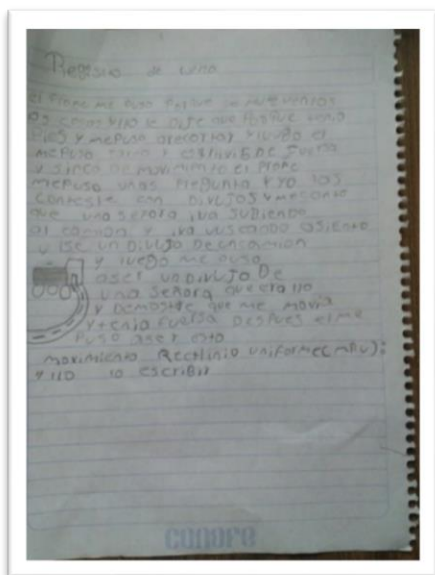 Registro de
el Profe me Puso Porque se mueven las
os cosas y llo le dije que Porque tenia
Pies y me Puso a recortar y luego el
me Puso y escrivi 5 De fuersa
y sinco De movimiento el Profe
me Puso unas Pregunta y yo las
conteste con Divujos y me conto
que una señora iva subiendo
al camion y iva vuscando asiento
y ise un Divujo De un camion
y luego me puso
aser un Divujo De
una señora que era llo
y Demostre que me movia
y tenia fuersa Despues el me
Puso aser esto
movimiento Rectilinio uniforme(mRu):
y llo lo escribir
CONAFE